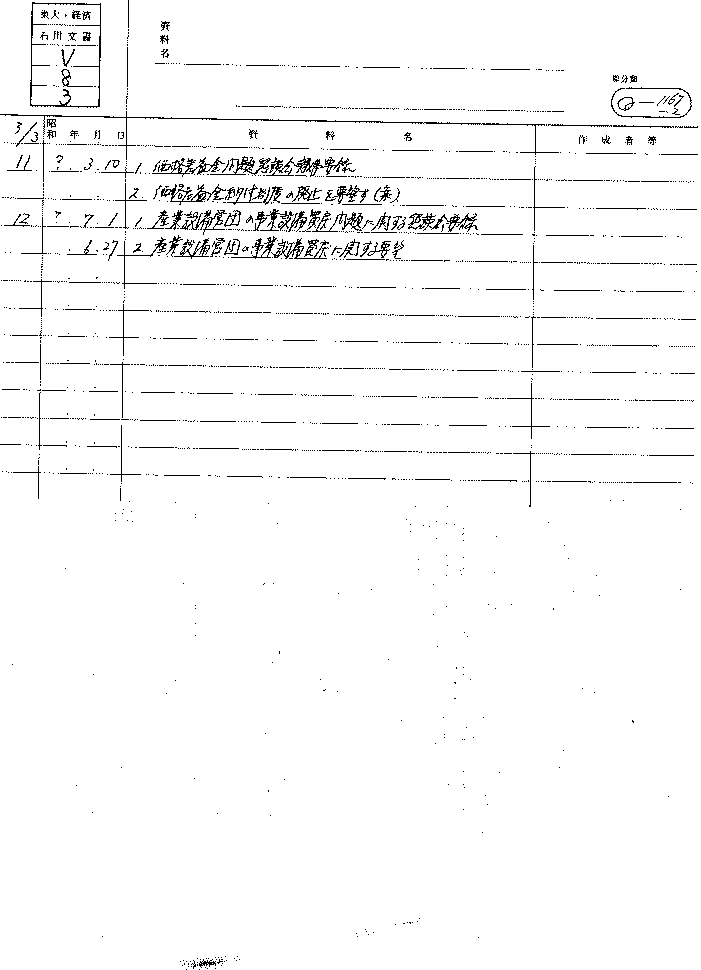 東大・経済
石川文書
V
8
3
資料名
原分類
Q-1167-2
3/3 昭和 年 月 日 資料名 作成者等
11 ? 3.10 1. 価格差益金問題懇談会関係書類
2. 価格差益金納付制度の廃止を要望す(案)
12 ? 7 1 1. 産業設備営団の事業設備買戻問題に関する懇談会書類
6.27 2. 産業設備営団の事業設備買戻に関する要望